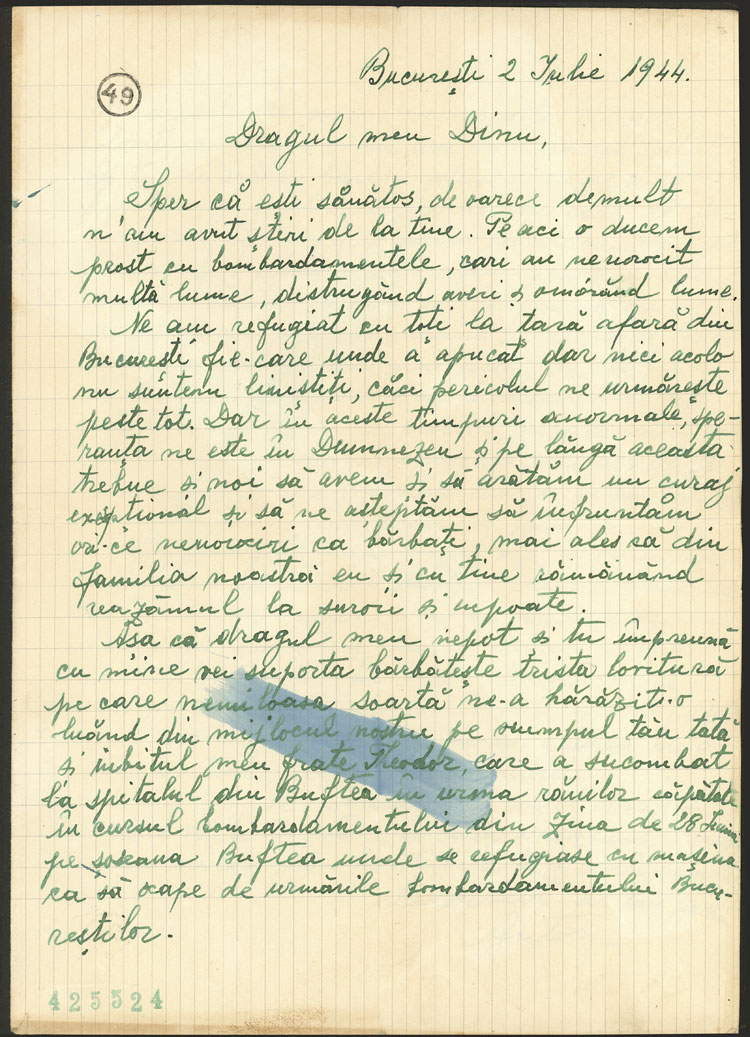 București 2 Iulie 1944.
49
Dragul meu Dinu,
Sper că ești sănătos, de oarece demult
n'am avut știri de la tine. Pe aci o ducem
prost cu bombardamentele, cari au nenorocit
multă lume, distrugând averi și omorând lume.
Ne am refugiat cu toti la tară afară din
București fie-care unde a apucat dar nici acolo
nu suntem linistiti, căci pericolul ne urmărește
peste tot. Dar în aceste timpuri anormale, spe-
ranța ne este în Dumnezeu și pe lângă aceasta
trebue si noi să avem si să arătăm un curaj
excepțional și să ne asteptăm să înfruntăm
ori-ce nenorociri ca bărbați, mai ales că din
familia noastră eu si cu tine rămănând
reazămul la surori si nepoate.
Asa că dragul meu nepot și tu împreună
cu mine vei suporta bărbătește trista lovitură
pe care nemiloasa soartă ne-a hărăzit-o
luând din mijlocul nostru pe scumpul tău tată
si iubitul meu frate Theodor, care a sucombat
la spitalul din Buftea în urma rănilor căpătate
în cursul bombardamentului din ziua de 28 Iunie
pe șoseaua Buftea unde se refugiase cu mașina
ca să scape de urmările bombardamentului Bucu-
reștilor.
425524